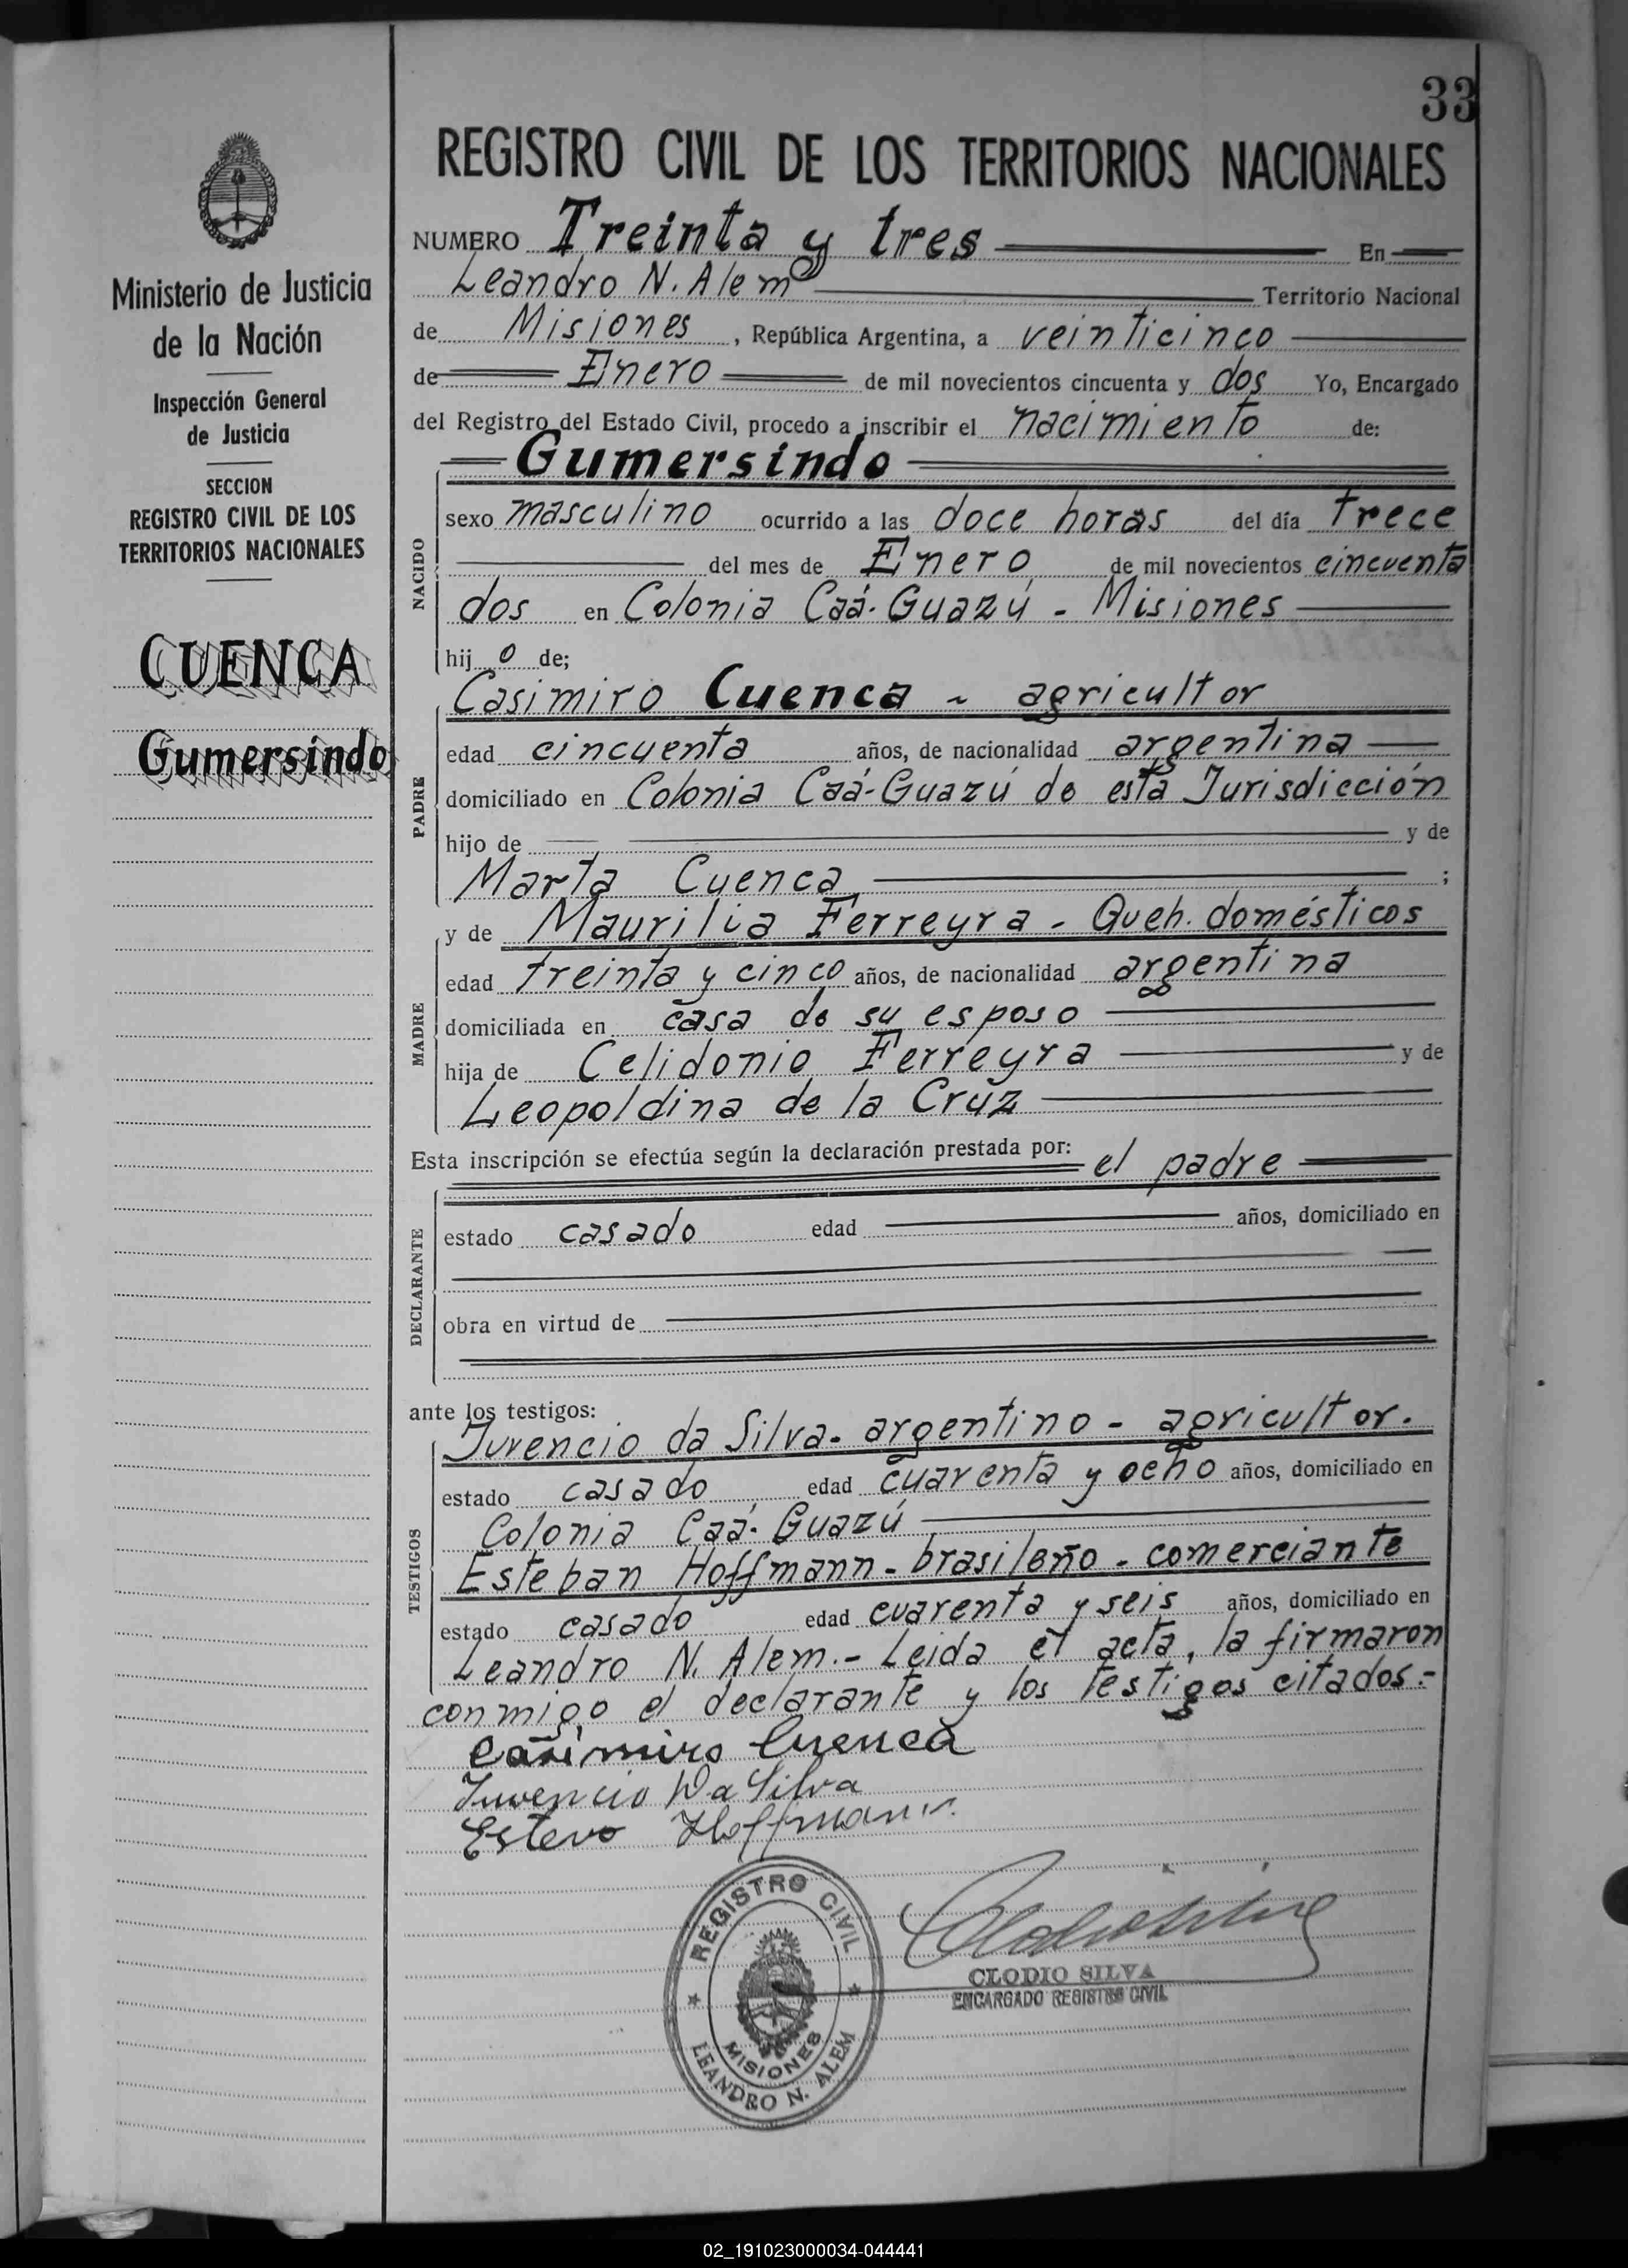 33
REGISTRO CIVIL DE LOS TERRITORIOS NACIONALES
Ministerio de Justicia
de la Nación
Inspección General
de Justicia
SECCION
REGISTRO CIVIL DE LOS
TERRITORIOS NACIONALES
CUENCA
Gumersindo
NUMERO Treinta y tres En
Leandro N. Alem Territorio Nacional
de Misiones, República Argentina, a veinticinco
de Enero de mil novecientos cincuenta y dos Yo, Encargado
del Registro del Estado Civil, procedo a inscribir el nacimiento de:
Gumersindo
NACIDO
sexo masculino ocurrido a las doce horas del día trece
del mes de Enero de mil novecientos cincuenta
dos en Colonia Caá-Guazú - Misiones
hijo de;
PADRE
Casimiro Cuenca - agricultor
edad cincuenta años, de nacionalidad argentina
domiciliado en Colonia Caá-Guazú de esta Jurisdicción
hijo de y de
Marta Cuenca ;
MADRE
y de Maurilia Ferreyra - Queh. domésticos
edad treinta y cinco años, de nacionalidad argentina
domiciliada en casa de su esposo
hija de Celidonio Ferreyra y de
Leopoldina de la Cruz
Esta inscripción se efectúa según la declaración prestada por: el padre
DECLARANTE
estado casado edad años, domiciliado en
obra en virtud de
ante los testigos:
TESTIGOS
Juvencio da Silva - argentino - agricultor.
estado casado edad cuarenta y ocho años, domiciliado en
Colonia Caá-Guazú
Esteban Hoffmann - brasileño - comerciante
estado casado edad cuarenta y seis años, domiciliado en
Leandro N. Alem.- Leida el acta, la firmaron
conmigo el declarante y los testigos citados.-
Casimiro Cuenca
Juvencio Da Silva
Estevo Hoffmann.
REGISTRO CIVIL
MISIONES
LEANDRO N. ALEM
CLODIO SILVA
ENCARGADO REGISTRO CIVIL
02_191023000034-044441